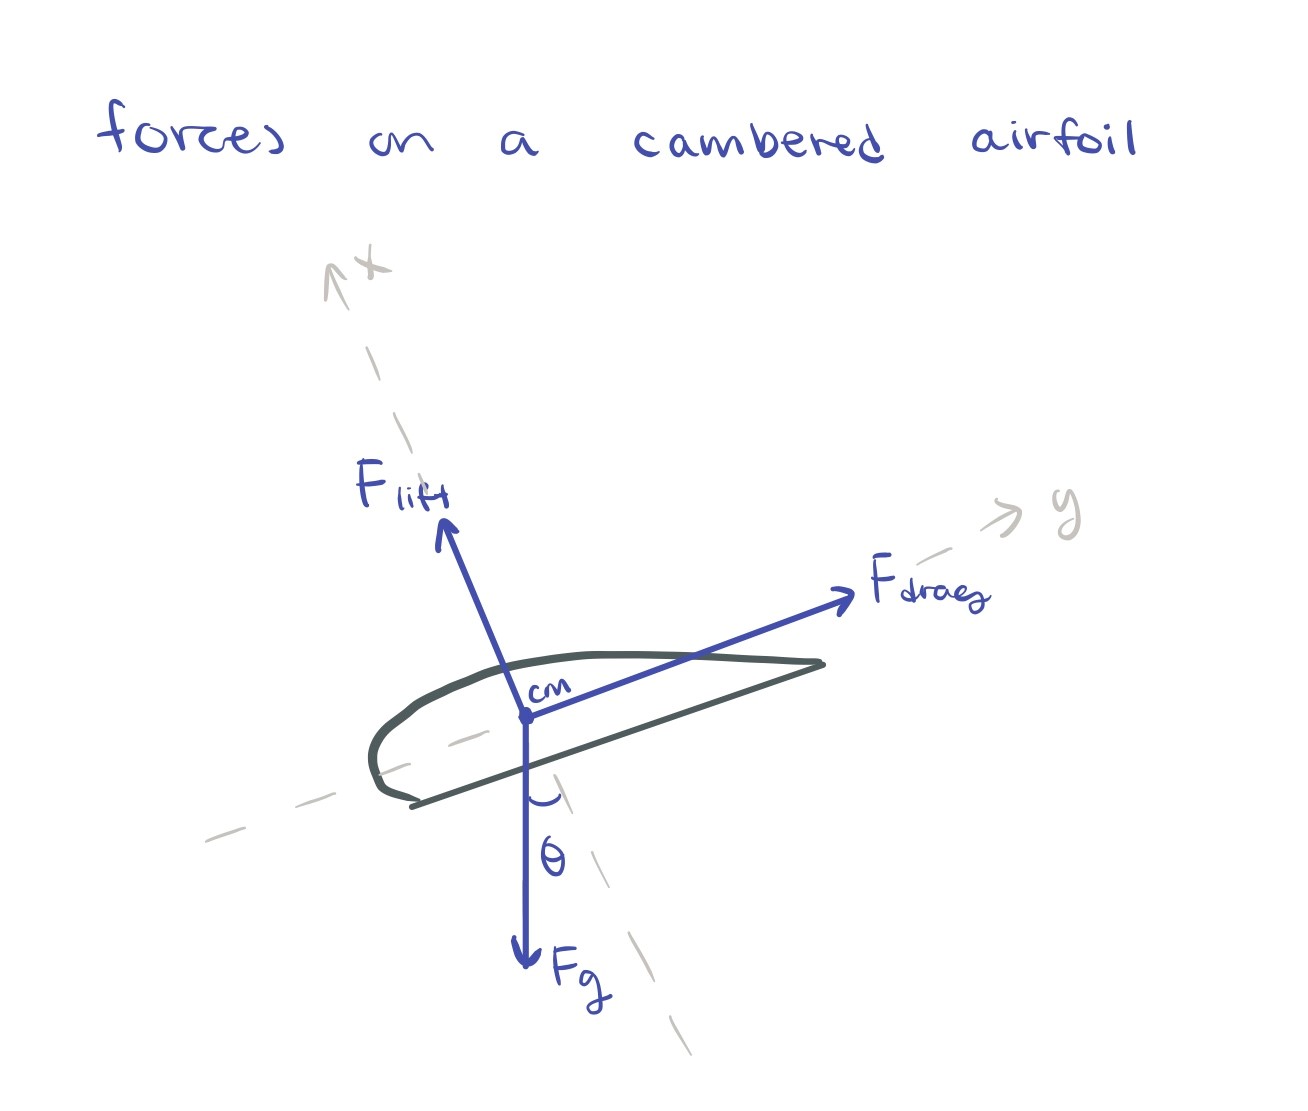 forces on a cambered airfoil
x
F lift
y
F drag
cm
θ
Fg